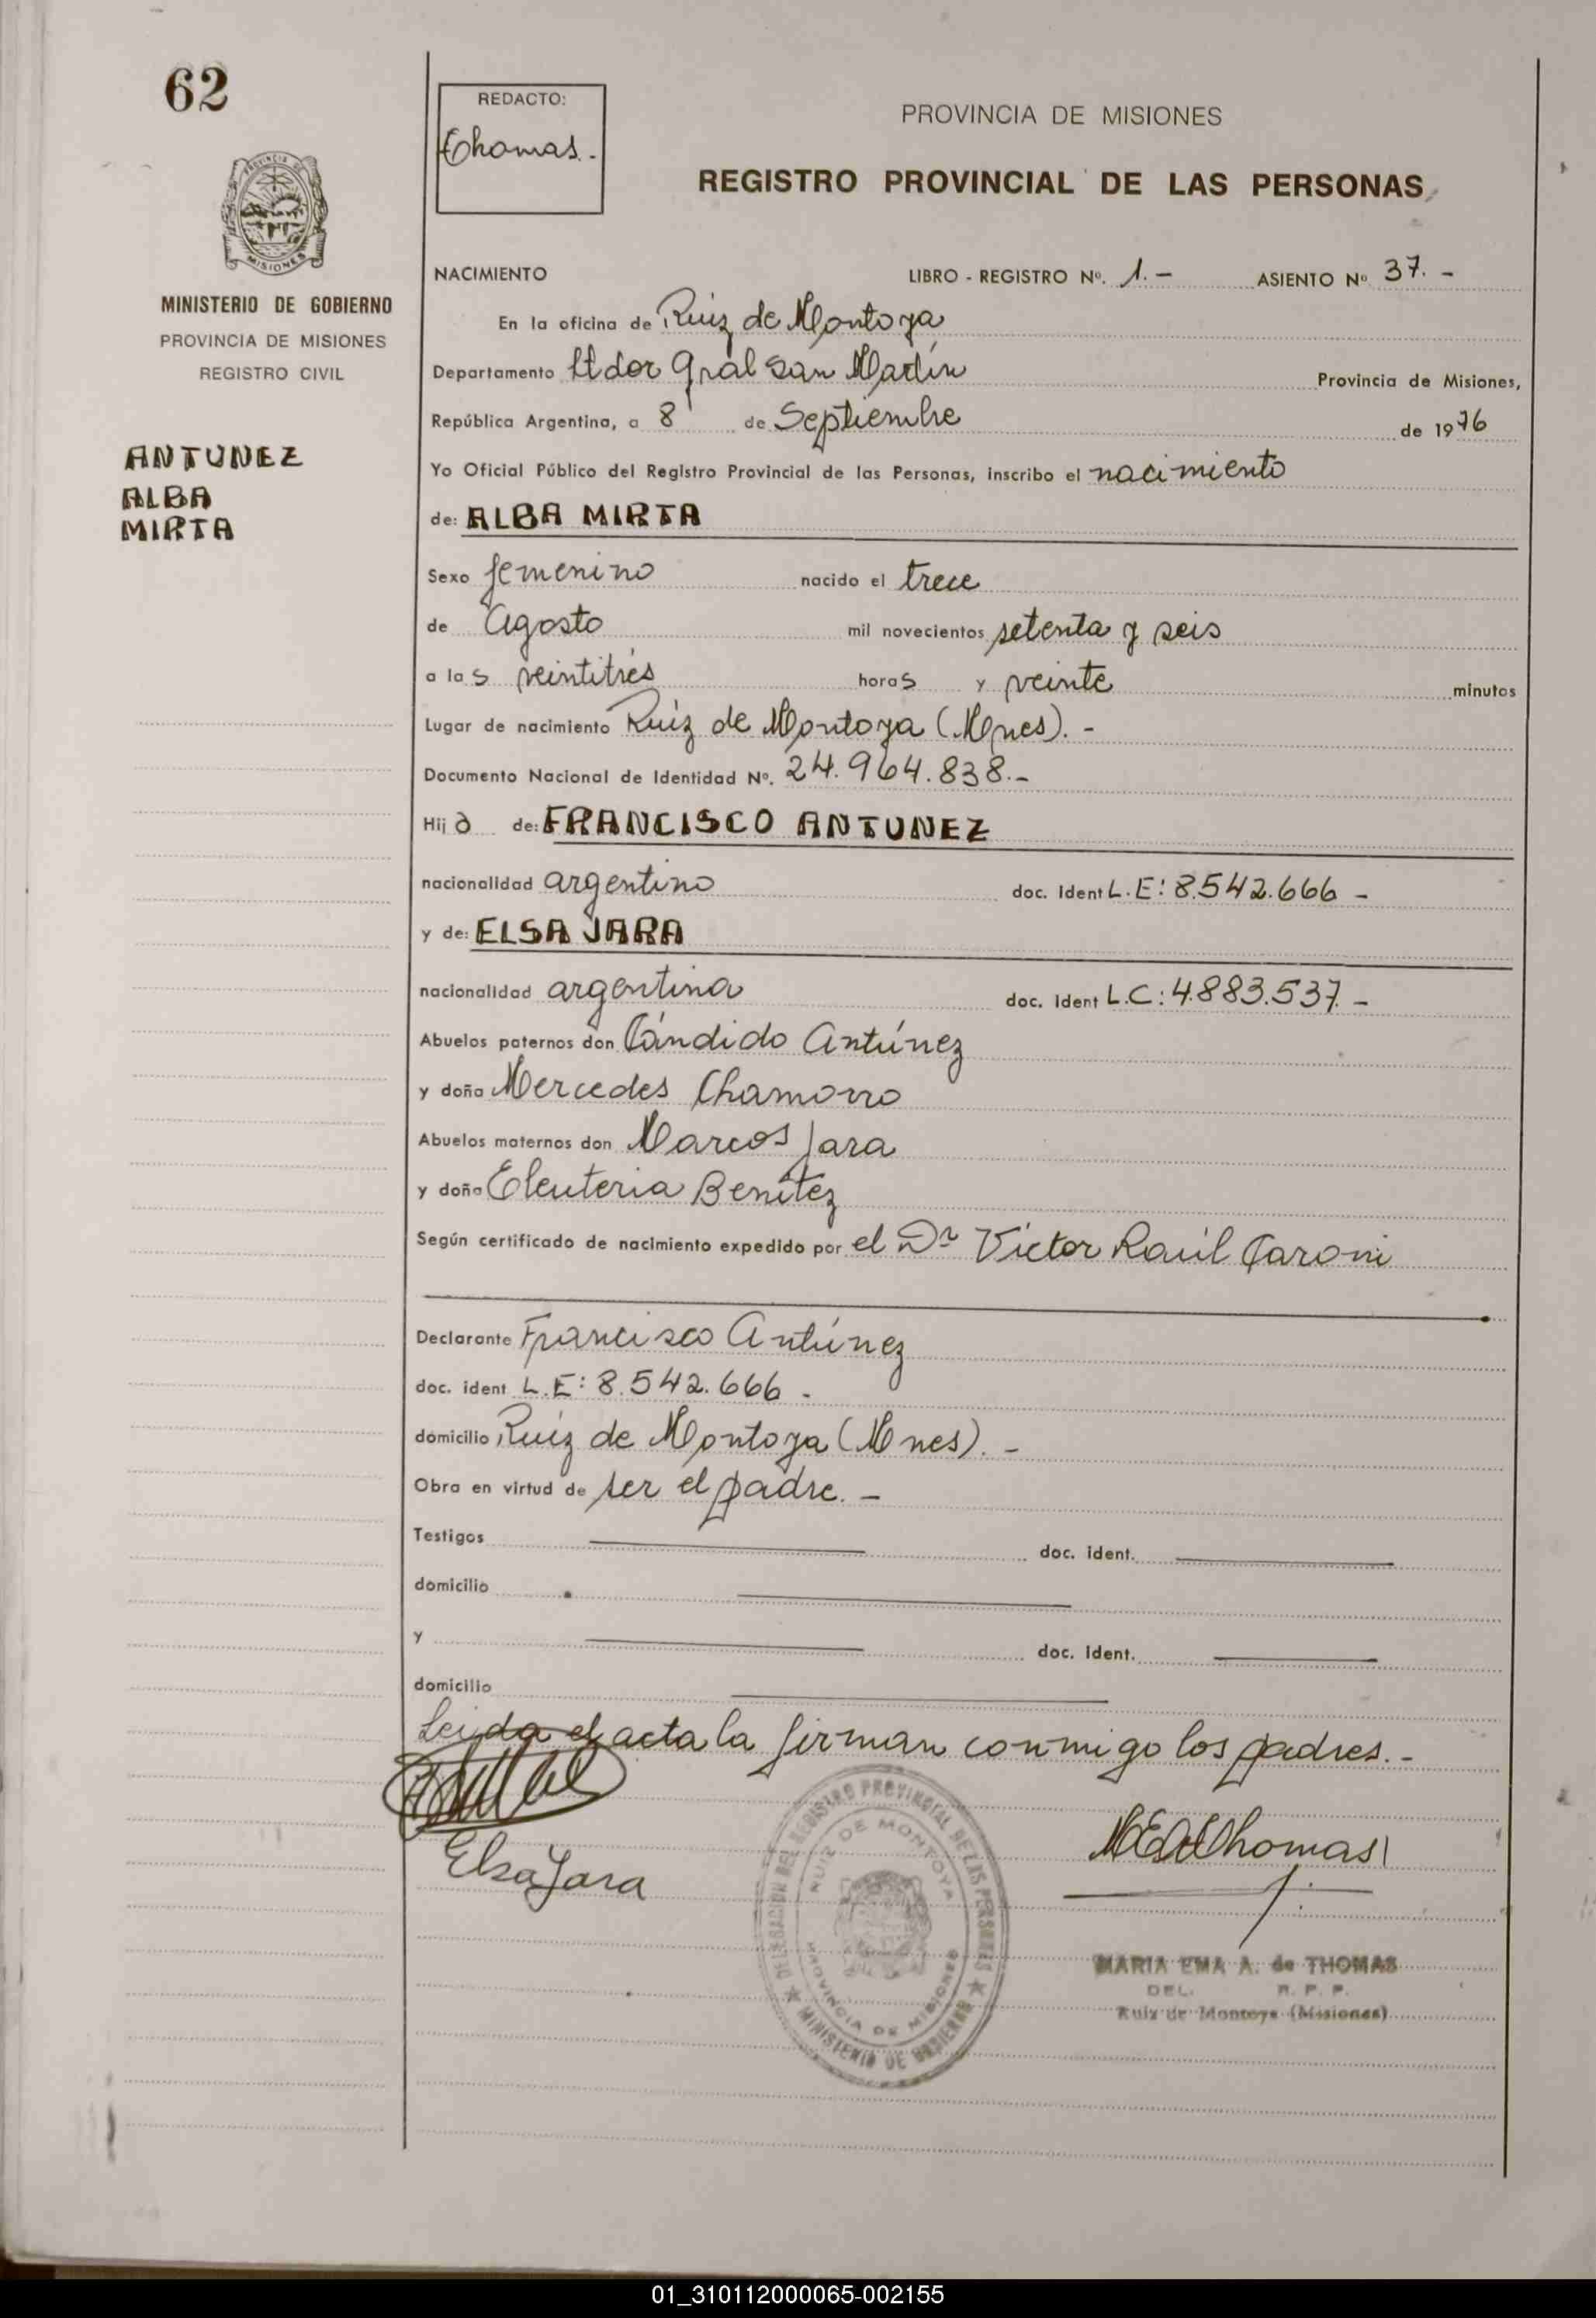 62
REDACTO:
Thomas.-
PROVINCIA DE MISIONES
REGISTRO PROVINCIAL DE LAS PERSONAS
PROVINCIA DE
MISIONES
MINISTERIO DE GOBIERNO
PROVINCIA DE MISIONES
REGISTRO CIVIL
ANTUNEZ
ALBA
MIRTA
NACIMIENTO LIBRO - REGISTRO Nº. 1.- ASIENTO Nº 37.-
En la oficina de Ruiz de Montoya
Departamento Ltdor Gral San Martín Provincia de Misiones,
República Argentina, a 8 de Septiembre de 1976
Yo Oficial Público del Registro Provincial de las Personas, inscribo el nacimiento
de: ALBA MIRTA
Sexo femenino nacido el trece
de Agosto mil novecientos setenta y seis
a las veintitrés horas y veinte minutos
Lugar de nacimiento Ruiz de Montoya (Mnes).-
Documento Nacional de Identidad Nº. 24.964.838.-
Hija de: FRANCISCO ANTUNEZ
nacionalidad argentino doc. Ident L.E: 8.542.666 -
y de: ELSA JARA
nacionalidad argentina doc. Ident L.C: 4.883.537.-
Abuelos paternos don Cándido Antúnez
y doña Mercedes Chamorro
Abuelos maternos don Marcos Jara
y doña Eleuteria Benítez
Según certificado de nacimiento expedido por el Dr Víctor Raúl Caroni
Declarante Francisco Antúnez
doc. ident L.E: 8.542.666.
domicilio Ruiz de Montoya (Mnes).-
Obra en virtud de ser el padre.-
Testigos doc. ident.
domicilio
y doc. ident.
domicilio
Leida el acta la firman conmigo los padres.-
Elsa Jara
DELEGACION DEL REGISTRO PROVINCIAL DE LAS PERSONAS
RUIZ DE MONTOYA
PROVINCIA DE MISIONES
MINISTERIO DE GOBIERNO
MARIA EMA A. de THOMAS
DEL. R. P. P.
Ruiz de Montoya (Misiones)
01_310112000065-002155